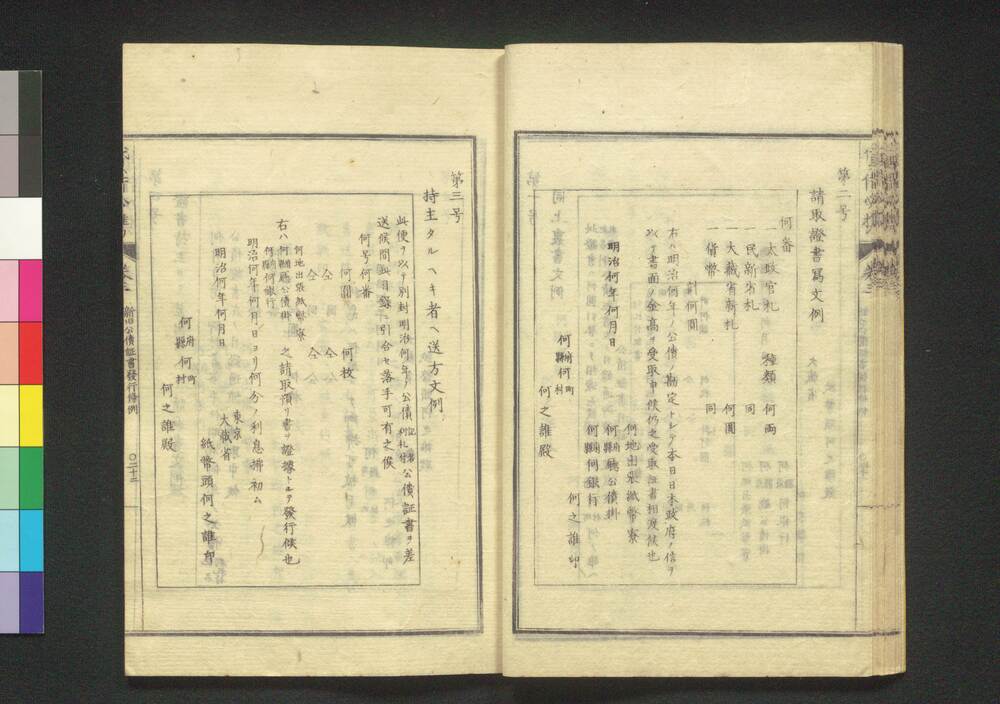 第二号
請取證書寫文例
何番
一太政官札 種類 何両
一民新省札 同
一大藏省新札 何圓
一貨幣 同
計何圓
右ハ明治何年ノ公債ノ勘定トシテ本日日本政府ノ信ヲ
以テ書面ノ金高ヲ受取申候仍之受取証書相渡候也
何地出張紙幣寮
明治何年何月日 何府縣廳公債掛
何縣何銀行
何之誰印
何府縣何町村
何之誰殿
第三号
持主タルヘキ者ヘ送方文例
此便ヲ以テ別封明治何年ノ公債公債証書ヲ差
送候間此目録ニ引合セ落手可有之候
何号何番
何圓 何枚
仝 仝
仝 仝
何地出張紙幣寮
右ハ何府縣廳公債掛 之請取預リ書ヲ證據トシテ發行候也
何縣何銀行
明治何年何月日ヨリ何分ノ利息拂初ム
東京
明治何年何月日 大藏省
紙幣頭何之誰印
何府縣何町村
何之誰殿
新旧公債証書發行條例
〇二十二